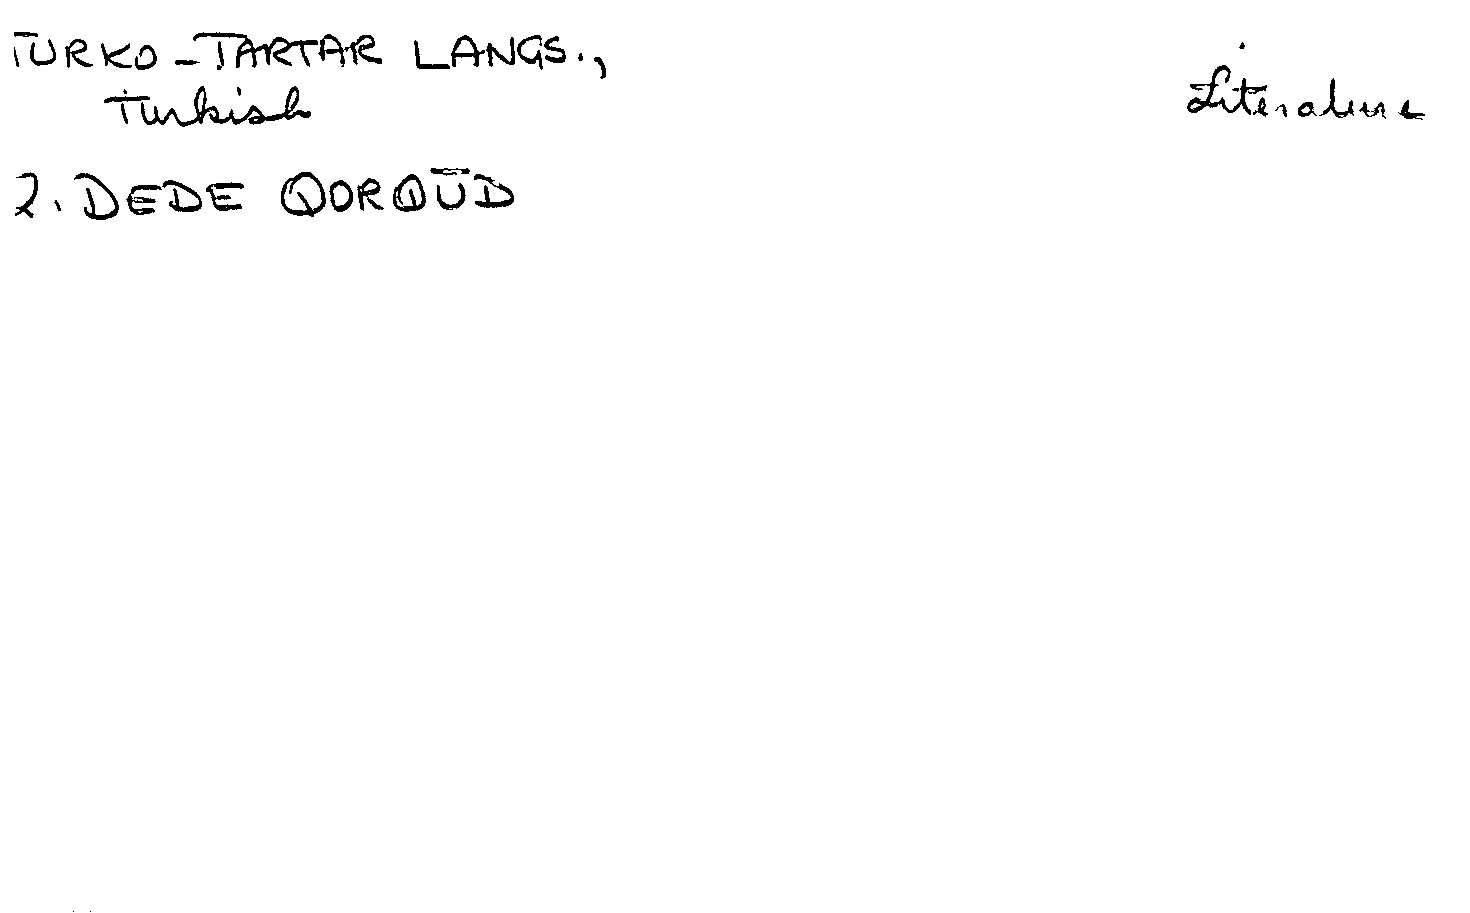 TURKO-TARTAR LANGS.,
Turkish
Literature
2. DEDE QORQŪD